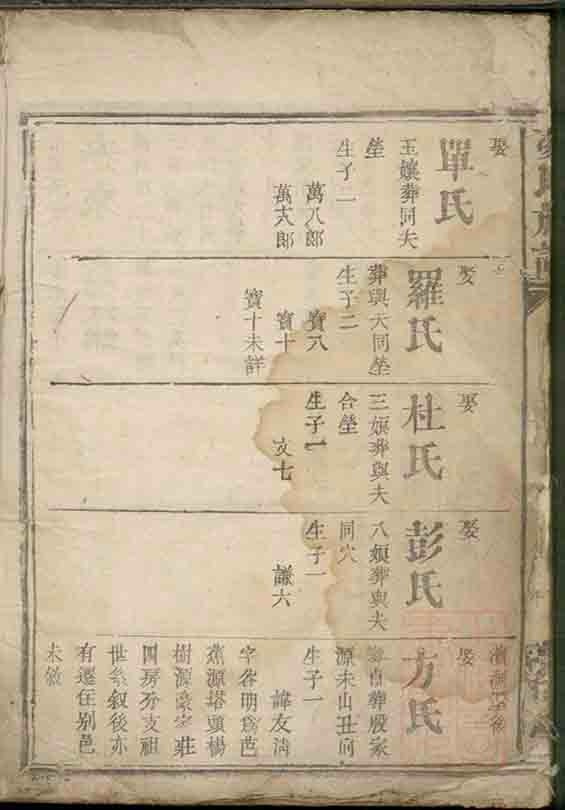 娶
單氏
玉孃葬同夫
塋
生子二
萬八郎
萬六郎
娶
羅氏
葬與夫同塋
生子二
寶八
寶十
寶十未詳
娶
杜氏
三嬪葬與夫
合塋
生子一
文七
娶
彭氏
八嬪葬與夫
同穴
生子一
謙六
娶
方氏
源未山丑向
生子一
諱友清
字徃明為芭
蕉源塔頭楊
樹源豪字莊
四房分支祖
世系叙後亦
有遷住别邑
未敘